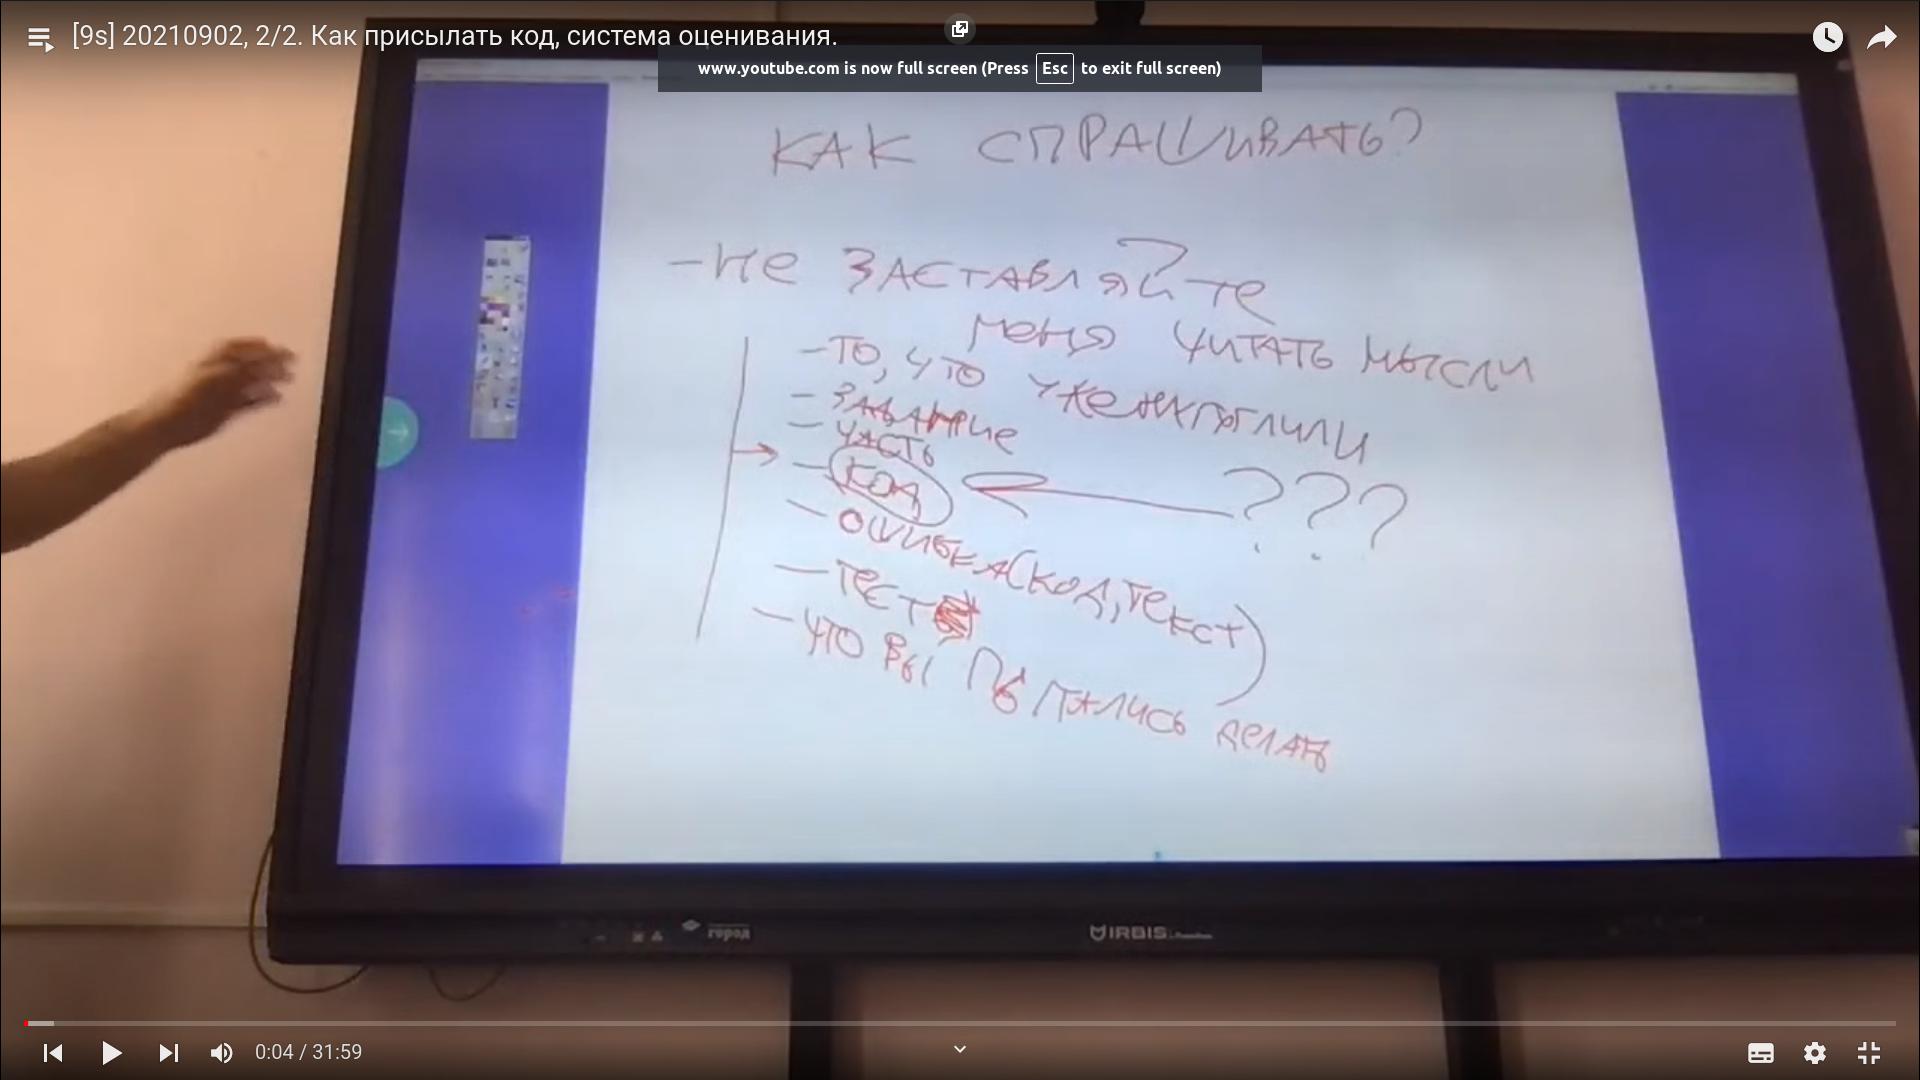 [9s] 20210902, 2/2. Как присылать код, система оценивания.
www.youtube.com is now full screen (Press Esc to exit full screen)
КАК СПРАШИВАТЬ?
– НЕ ЗАСТАВЛЯЙТЕ
МЕНЯ ЧИТАТЬ МЫСЛИ
– ТО, ЧТО УЖЕ НАГУГЛИЛИ
– ЗАДАНИЕ
– ЧАСТЬ
– КОД ???
– ОШИБКА (КОД, ТЕКСТ)
– ТЕСТ
– ЧТО ВЫ ПЫТАЛИСЬ ДЕЛАТЬ
город
IRBIS
0:04 / 31:59